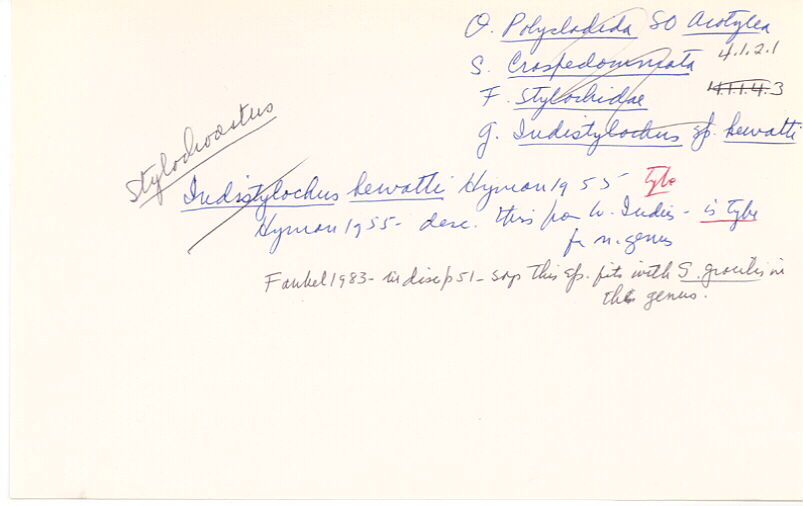 O. Polycladida SO Acotylea
4.1.2.1
S. Craspedommata
4.1.1.4.3
F. Stylochidae
g. Indistylochus sp. hewatti
Stylochoastus
Indistylochus hewatti Hyman 1955 type
Hyman 1955- desc. this from W. Indies - is type
for n. genus
Faubel 1983- in disc p51- says this sp. fits with S. gracilis in
this genus.